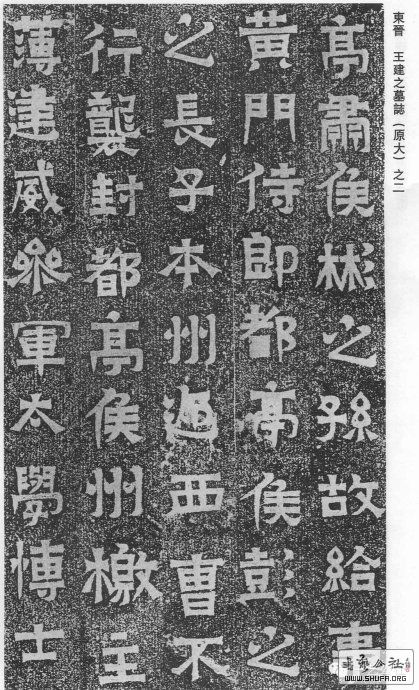 東晉　王建之墓誌（原大）之二
亭肅侯彬之孫故給事
黃門侍郎都亭侯彭之
之長子本州迎西曹不
行襲封都亭侯州檄主
薄建威參軍太學博士
WWW.SHUFA.ORG